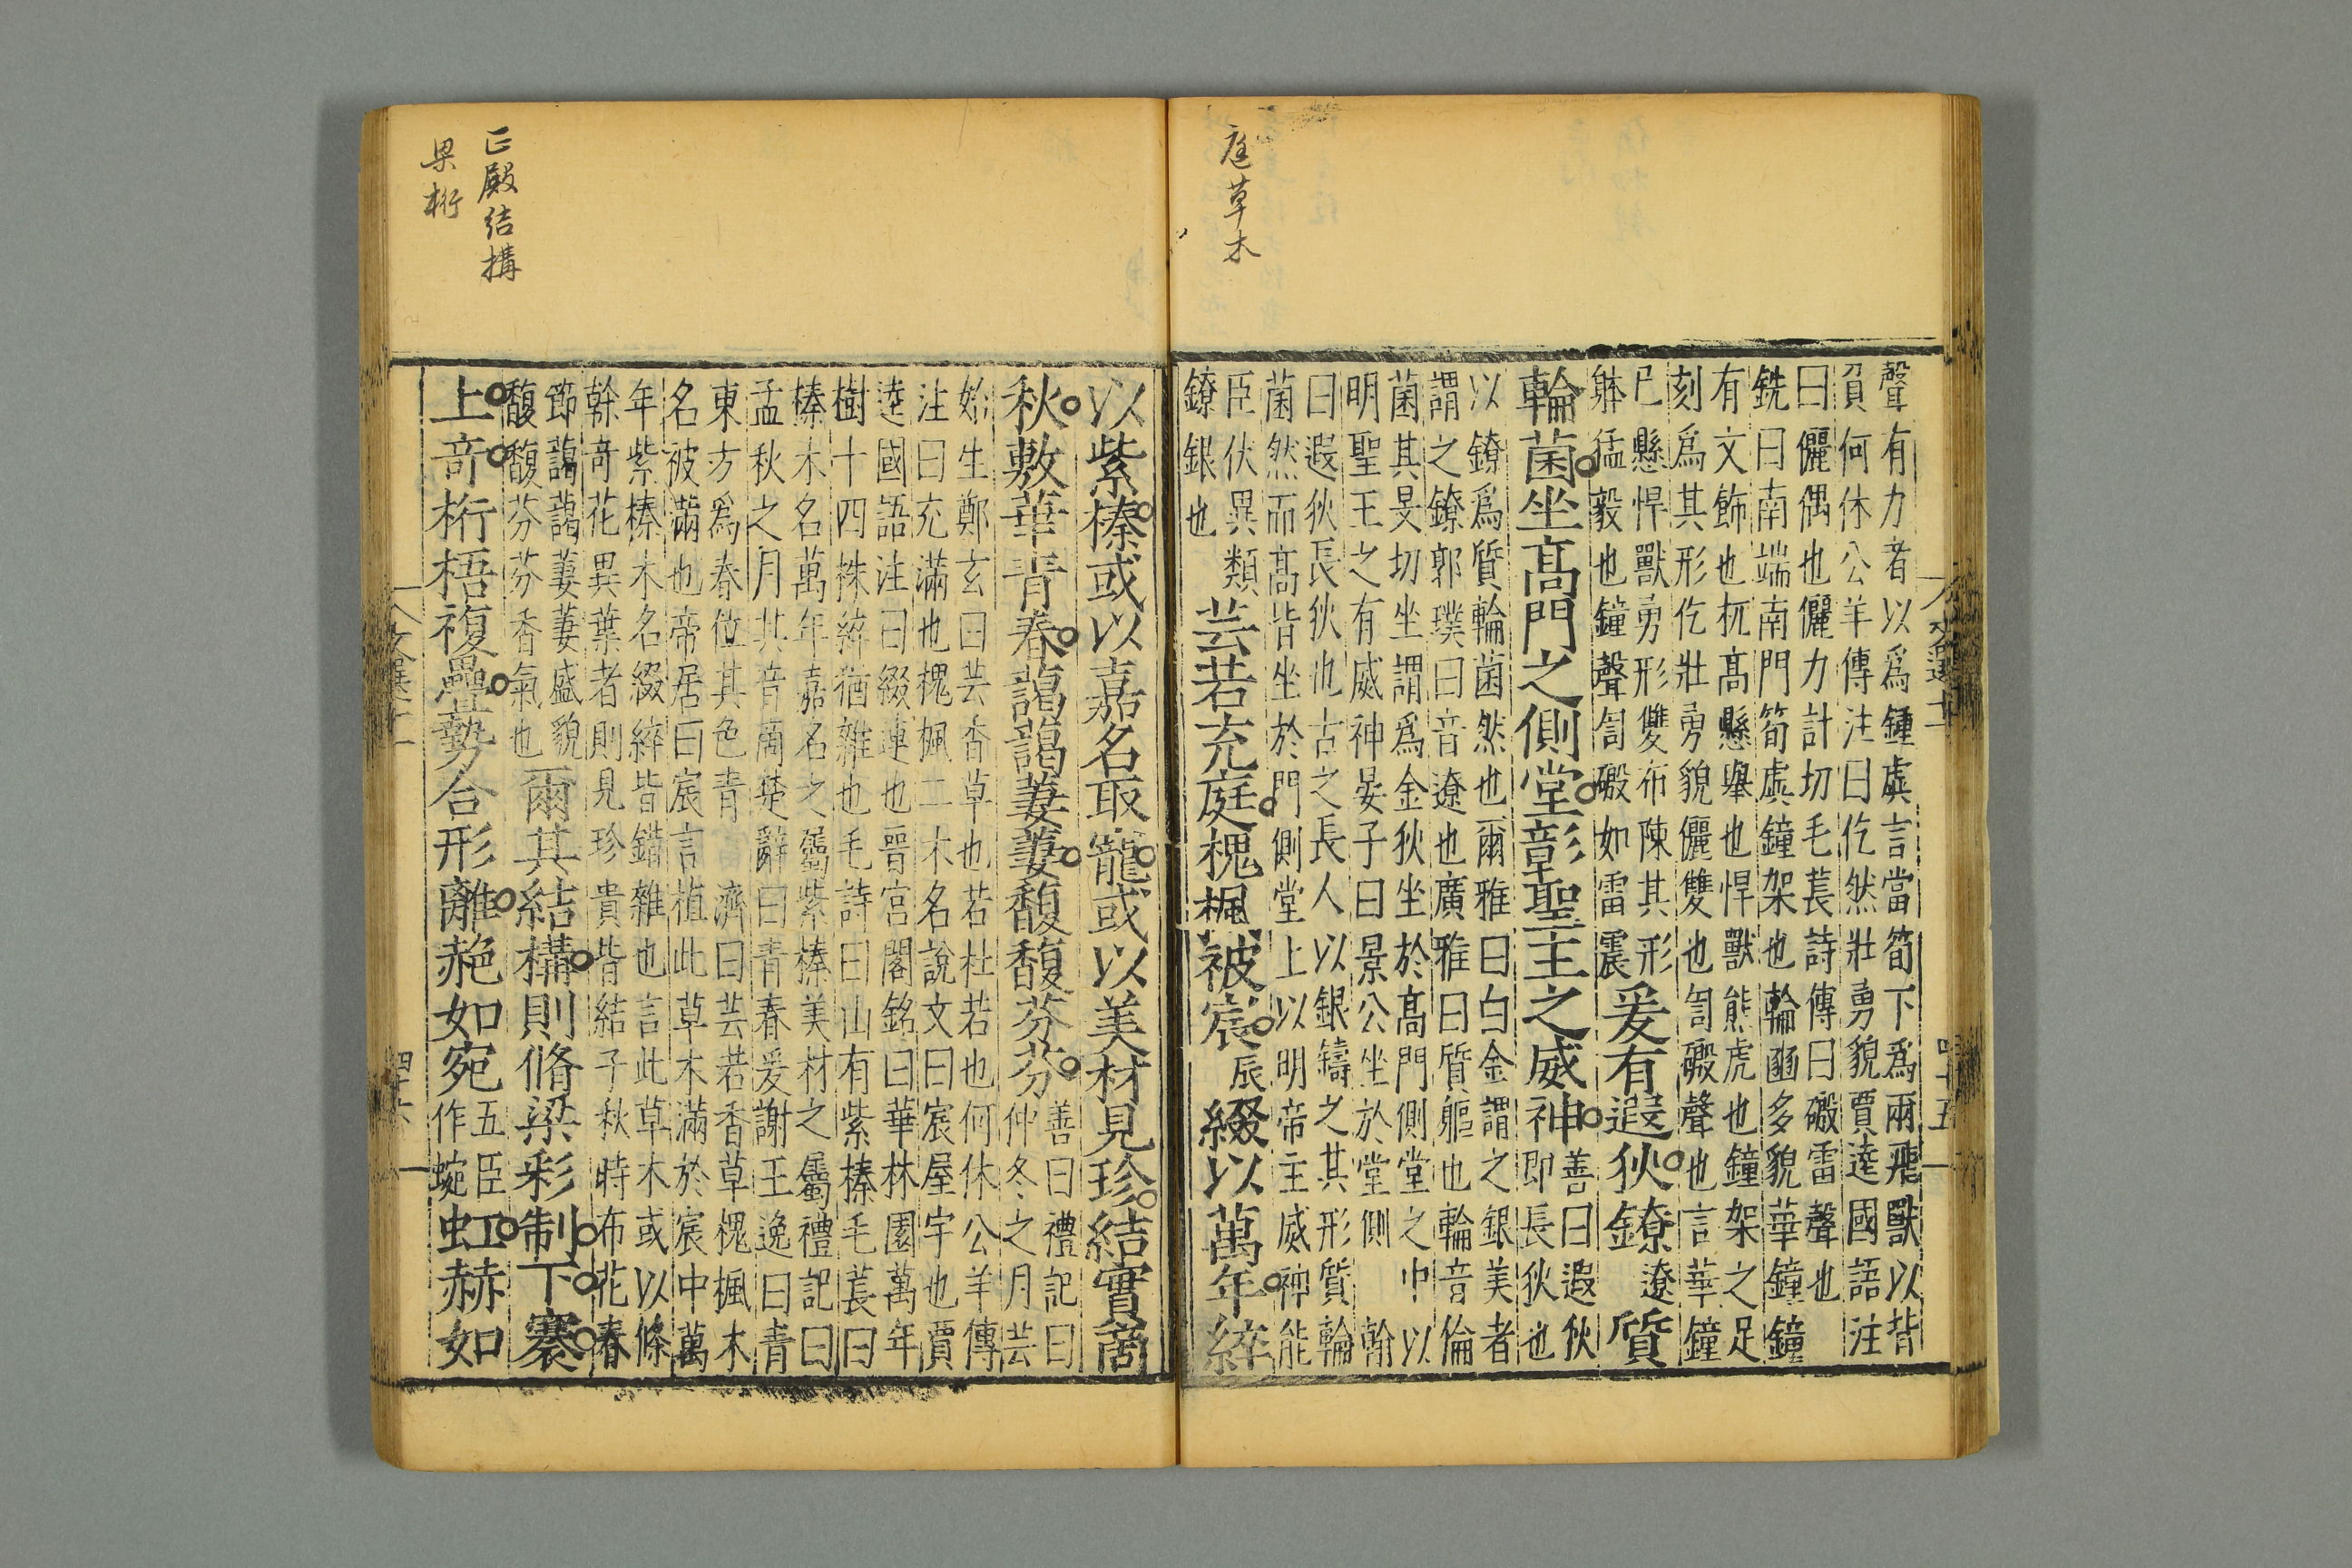 庭草木
文選十一
四十五
聲有力者以爲鍾虡言當筍下爲兩飛獸以背
負何休公羊傳注曰仡然壯勇貌賈逵國語注
曰儷偶也儷力計切毛萇詩傳曰礟雷聲也
銑曰南端南門筍虡鐘架也輪豳多貌華鐘鐘
有文飾也抗高懸舉也悍獸熊虎也鐘架之足
刻爲其形仡壯勇貌儷雙也訇礟聲也言華鐘
已懸悍獸勇形雙布陳其形
躰猛毅也鐘聲訇礟如雷震
爰有遐狄鐐遼質
輪菌坐髙門之側堂彰聖主之威神
善曰遐狄
即長狄也
以鐐爲質輪菌然也爾雅曰白金謂之銀美者
謂之鐐郭璞曰音遼也廣雅曰質軀也輪音倫
菌其旻切坐謂爲金狄坐於髙門側堂之中以
明聖王之有威神晏子曰景公坐於堂側 翰
曰遐狄長狄也古之長人以銀鑄之其形質輪
菌然而髙皆坐於門側堂上以明帝主威神能
臣伏異類
鐐銀也
芸若充庭槐楓被宸辰綴以萬年綷
正殿结搆
梁桁
以紫榛或以嘉名取寵或以美材見珍結實商
秋敷華青春藹藹萋萋馥馥芬芬
善曰禮記曰
仲冬之月芸
始生鄭玄曰芸香草也若杜若也何休公羊傳
注曰充滿也槐楓二木名說文曰宸屋宇也賈
逵國語注曰綴連也晉宮閣銘曰華林園萬年
樹十四株綷猶雜也毛詩曰山有紫榛毛萇曰
榛木名萬年嘉名之屬紫榛美材之屬禮記曰
孟秋之月其音商楚辭曰青春爰謝王逸曰青
東方爲春位其色青 濟曰芸若香草槐楓木
名被滿也帝居曰宸言植此草木滿於宸中萬
年紫榛木名綴綷皆錯雜也言此草木或以條
幹竒花異葉者則見珍貴皆結子秋時布花春
節藹藹萋萋盛貌
馥馥芬芬香氣也
爾其結構則脩梁彩制下褰
上竒桁梧複疊勢合形離赩如宛
五臣
作蜿
虹赫如
文選十一
四十六